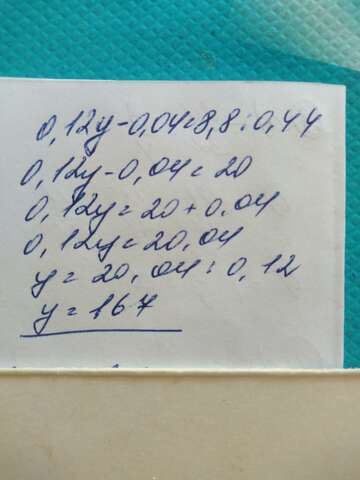 0,12y-0,04=8,8:0,44
0,12y-0,04=20
0,12y=20+0,04
0,12y=20,04
y=20,04:0,12
y=167